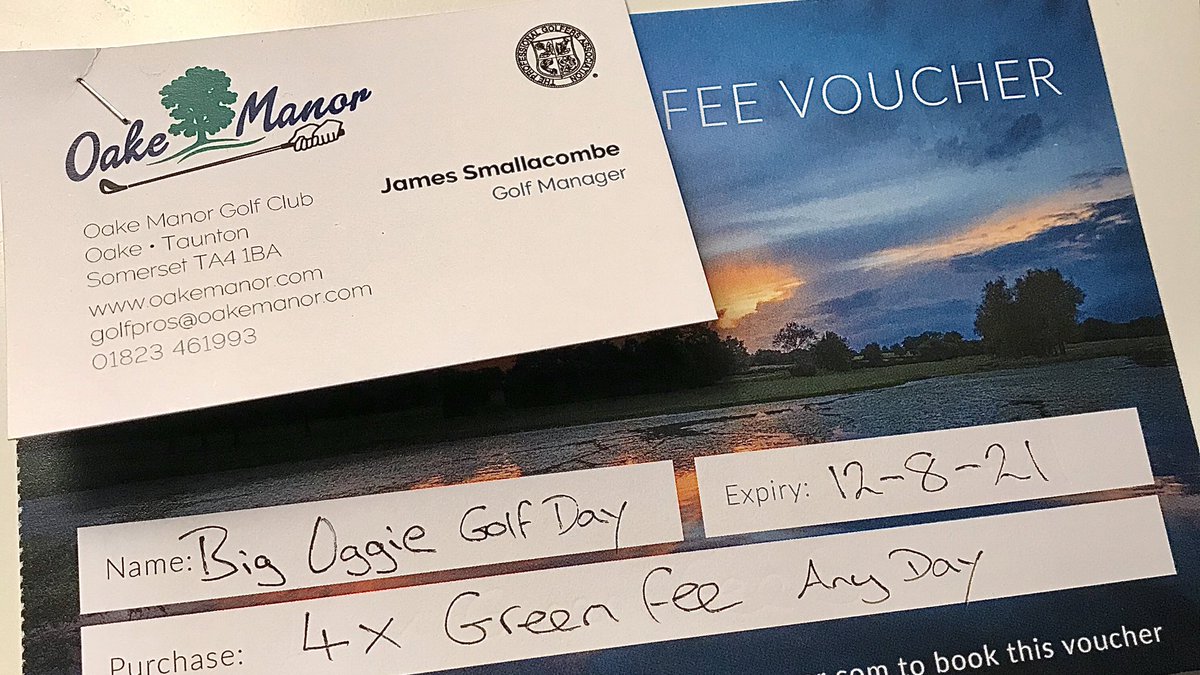 Oake Manor
THE PROFESSIONAL GOLFERS ASSOCIATION
James Smallacombe
Golf Manager
Oake Manor Golf Club
Oake • Taunton
Somerset TA4 1BA
www.oakemanor.com
golfpros@oakemanor.com
01823 461993
FEE VOUCHER
Name: Big Oggie Golf Day
Expiry: 12-8-21
Purchase: 4x Green Fee Any Day
.com to book this voucher